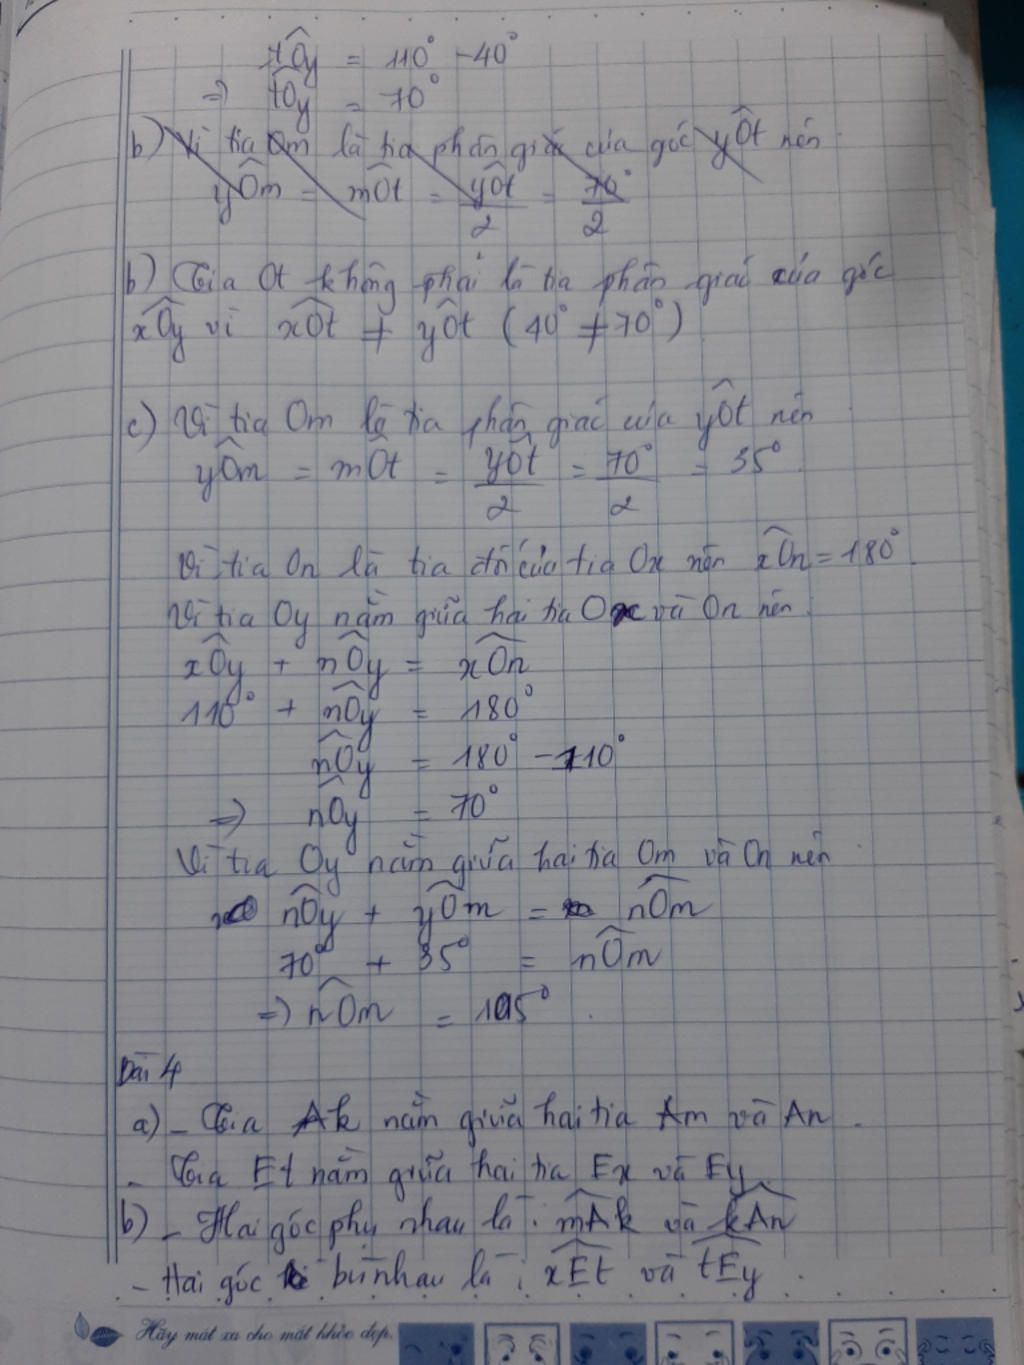 tÔy = 110° - 40°
=> tÔy = 70°
b) Vì tia Om là tia phân giác của góc yÔt nên
yÔm = mÔt = yÔt/2 = 70°/2
b) Tia Ot không phải là tia phân giác của góc
xÔy vì xÔt ≠ yÔt (40° ≠ 70°)
c) Vì tia Om là tia phân giác của yÔt nên
yÔm = mÔt = yÔt/2 = 70°/2 = 35°
Vì tia On là tia đối của tia Ox nên xÔn = 180°
Vì tia Oy nằm giữa hai tia Ox và On nên
xÔy + nÔy = xÔn
110° + nÔy = 180°
nÔy = 180° - 110°
=> nÔy = 70°
Vì tia Oy nằm giữa hai tia Om và On nên
nÔy + yÔm = nÔm
70° + 35° = nÔm
=> nÔm = 105°.
Bài 4
a) - Tia Ak nằm giữa hai tia Am và An.
- Tia Et nằm giữa hai tia Ex và Ey.
b) - Hai góc phụ nhau là: mÂk và kÂn
- Hai góc bù nhau là: xÊt và tÊy.
Hãy mát xa cho mắt khỏe đẹp.